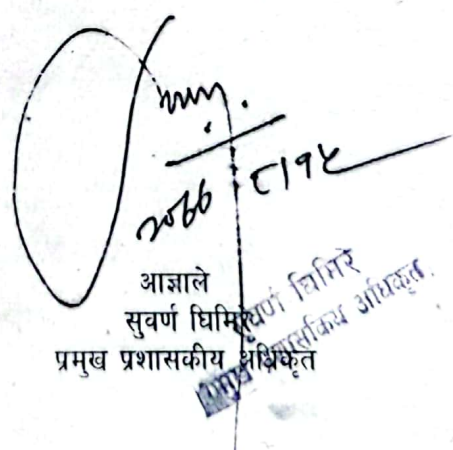 आज्ञाले
सुवर्ण घिमिरे
प्रमुख प्रशासकीय अधिकृत
सुवर्ण घिमिरे
प्रमुख प्रशासकिय अधिकृत